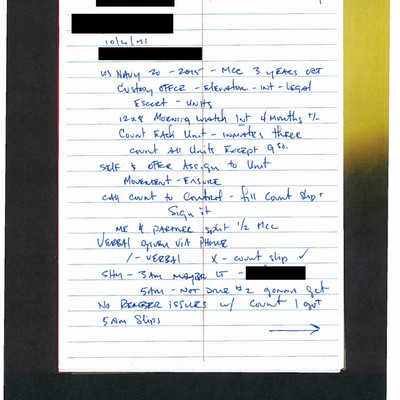 10/6/21
US NAVY 20 - 2015 - MCC 3 YEARS OCT
CUSTODY OFFICER - ELEVATOR - INT - LEGAL
ESCORT - UNITS
12x8 MORNING WATCH INT 4 MONTHS +/-
COUNT EACH UNIT - INMATES THERE
COUNT ALL UNITS EXCEPT 9So.
SELF & OFFCER ASSIGN TO UNIT
MOVEMENT - ENSURE
CALL COUNT TO CONTROL - fill COUNT SLIP +
SIGN IT
ME & PARTNER SPLIT 1/2 MCC
VERBAL GIVEN VIA PHONE
/ - VERBAL X - COUNT SLIP ✓
SHU - 3AM MAYBE LT -
5AM - NOT DONE #2 gonna get
NO REMBER ISSUES w/ COUNT I got
5AM SLIPS